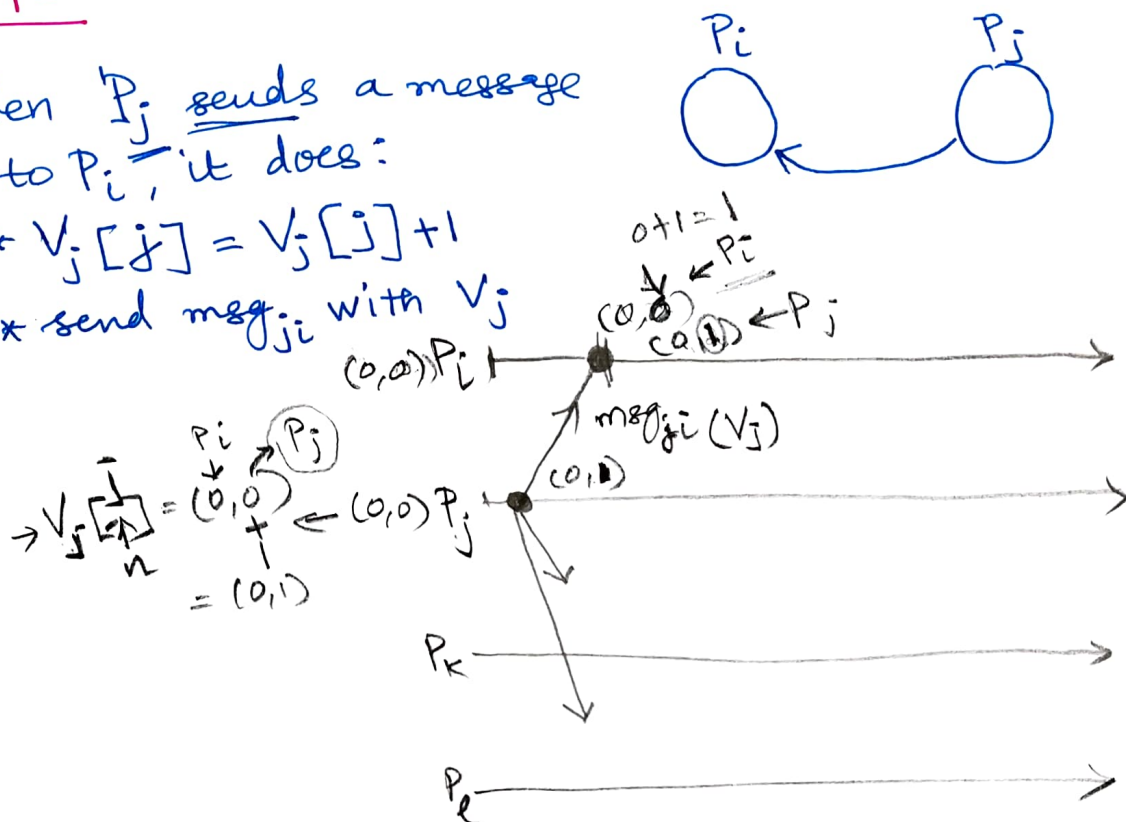 en Pj sends a message
to Pi, it does:
Vj [j] = Vj [j] +1
* send msgji with Vj
Pi
Pj
0+1=1
← Pi
(0,0)
(0,1) ← Pj
(0,0) Pi
msgji (Vj)
(0,1)
Pi
Pj
→ Vj
n
= (0,0) ← (0,0) Pj
+
1
= (0,1)
Pk
Pl